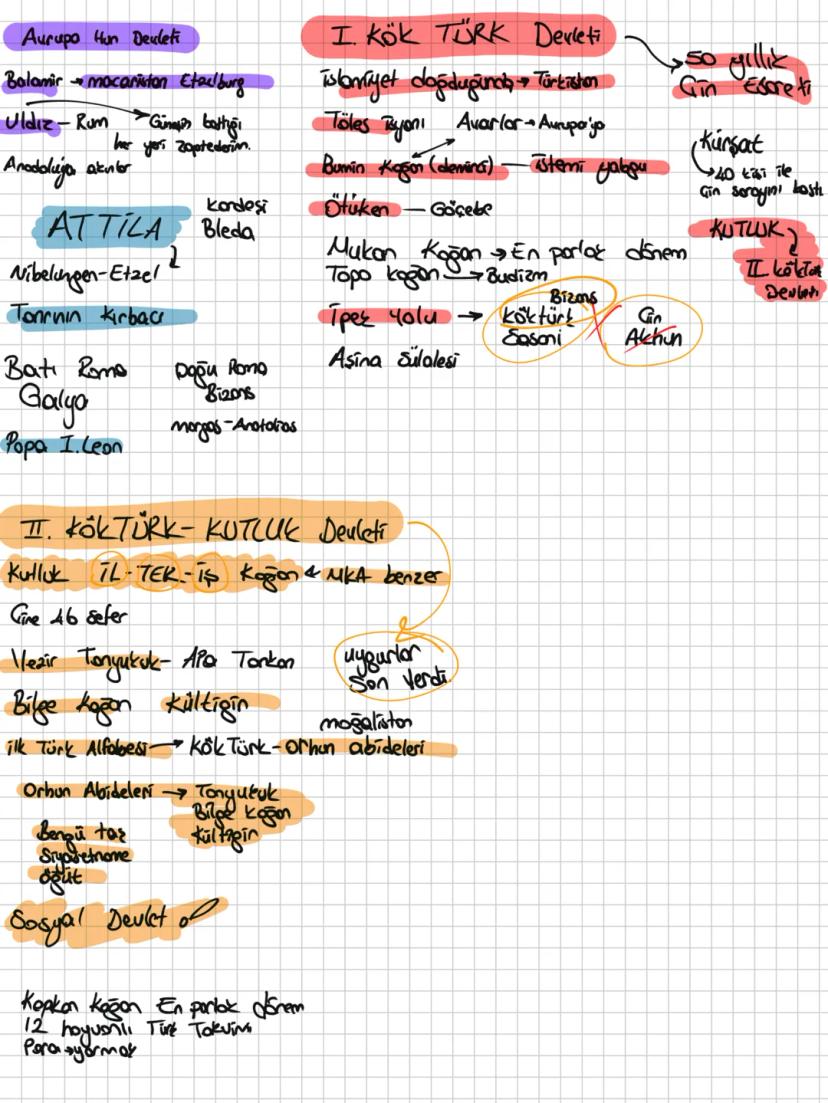 Avrupa Hun Devleti
Balamir → macaristan Etzelburg
Uldız – Rum → Güneşin battığı
her yeri zaptederim.
Anadoluya akınlar
ATTİLA
kardeşi
Bleda
Nibelungen-Etzel
Tanrının kırbacı
Batı Roma
Galya
Papa I. Leon
Doğu Roma
Bizans
margos-Anatolios
I. KÖK TÜRK Devleti
50 yıllık
Çin Esareti
islamiyet doğduğunda → Türkistan
Töles isyanı Avarlar → Avrupa'ya
Bumin Kağan (demirci) — istemi yabgu
Ötüken — Göçebe
Mukan Kağan → En parlak dönem
Tapo kağan → Budizm
İpek Yolu →
Bizans
Köktürk
Sasani
Çin
Akhun
Aşina Sülalesi
Kürşat
→ 40 kişi ile
Çin sarayını bastı
KUTLUK
II. köktürk
Devleti
II. KÖKTÜRK - KUTLUK Devleti
Kutluk İL-TEK-iş Kağan & MKA benzer
Çine 46 sefer
Vezir Tonyukuk – Apa Tarkan
uygurlar
Son Verdi.
Bilge Kağan Kültigin
moğalistan
ilk Türk Alfabesi → KÖKTürk-Orhun abideleri
Orhun Abideleri → Tonyukuk
Bilge Kağan
Kültigin
Bengü taş
Siyasetname
öğüt
Sosyal Devlet
Kapkan Kağan En parlak dönem
12 hayvanlı Türk Takvimi
Para → yarmak